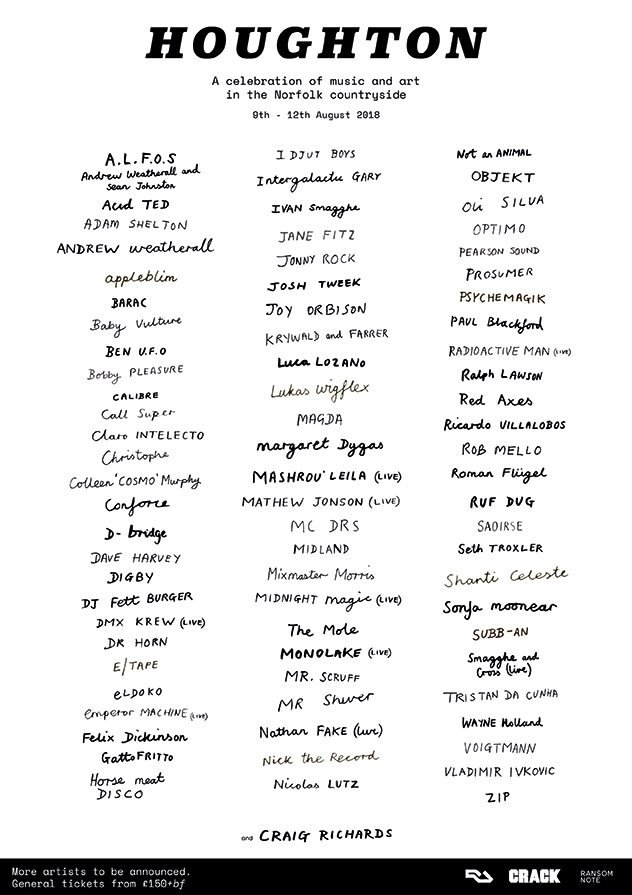 HOUGHTON
A celebration of music and art
in the Norfolk countryside
9th - 12th August 2018
A.L.F.O.S
Andrew Weatherall and
Sean Johnston
Acid TED
ADAM SHELTON
ANDREW weatherall
appleblim
BARAC
Baby Vulture
BEN U.F.O
Bobby PLEASURE
CALIBRE
Call Super
Claro INTELECTO
Christophe
Colleen 'COSMO' Murphy
Conforce
D-bridge
DAVE HARVEY
DIGBY
DJ Fett BURGER
DMX KREW (LIVE)
DR HORN
E/TAPE
eLDOKO
emperor MACHINE (LIVE)
Felix Dickinson
Gatto FRITTO
Horse meat
DISCO
I DJUT BOYS
Intergalactic GARY
IVAN Smagghe
JANE FITZ
JONNY ROCK
JOSH TWEEK
JOY ORBISON
KRYWALD and FARRER
Luca LOZANO
Lukas wigflex
MAGDA
margaret Dygas
MASHROU' LEILA (LIVE)
MATHEW JONSON (LIVE)
MC DRS
MIDLAND
Mixmaster Morris
MIDNIGHT magic (LIVE)
The Mole
MONOLAKE (LIVE)
MR. SCRUFF
MR Shiver
Nathan FAKE (live)
Nick the Record
Nicolas LUTZ
Not an ANIMAL
OBJEKT
Oli SILVA
OPTIMO
PEARSON SOUND
PROSUMER
PSYCHEMAGIK
PAUL Blackford
RADIOACTIVE MAN (LIVE)
Ralph LAWSON
Red Axes
Ricardo VILLALOBOS
ROB MELLO
Roman Flügel
RUF DUG
SAOIRSE
Seth TROXLER
Shanti Celeste
Sonja moonear
SUBB-AN
Smagghe and
Cross (live)
TRISTAN DA CUNHA
WAYNE Holland
VOIGTMANN
VLADIMIR IVKOVIC
ZIP
and CRAIG RICHARDS
More artists to be announced.
General tickets from £150+bf
RA
CRACK
RANSOM
NOTE